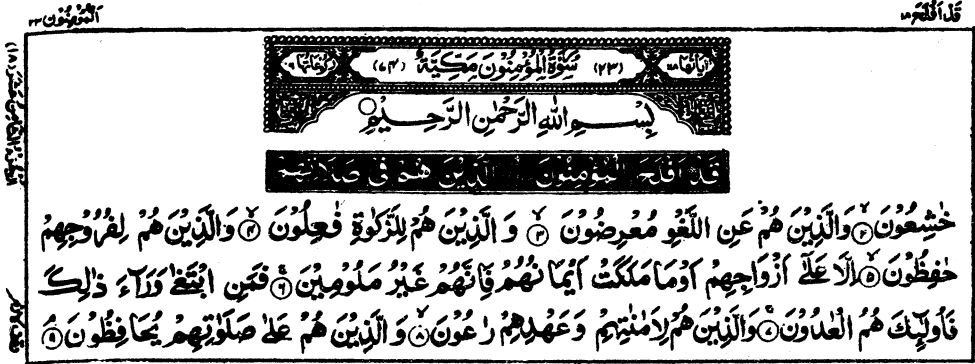 قَدْ اَفْلَحَ ١٨
الْمُؤْمِنُوْن ٢٣
اٰيَاتُهَا (٢٣) سُوْرَةُ الْمُؤْمِنُوْنَ مَكِّيَّةٌ (٧٤) رُكُوْعَاتُهَا ٦
بِسْمِ اللّٰهِ الرَّحْمٰنِ الرَّحِيْمِ
قَدْ اَفْلَحَ الْمُؤْمِنُوْنَ الَّذِيْنَ هُمْ فِیْ صَلَاتِهِمْ
خٰشِعُوْنَ ۝٢ وَالَّذِيْنَ هُمْ عَنِ اللَّغْوِ مُعْرِضُوْنَ ۝٣ وَالَّذِيْنَ هُمْ لِلزَّكٰوةِ فٰعِلُوْنَ ۝٤ وَالَّذِيْنَ هُمْ لِفُرُوْجِهِمْ
حٰفِظُوْنَ ۝٥ اِلَّا عَلٰٓى اَزْوَاجِهِمْ اَوْ مَا مَلَكَتْ اَيْمَانُهُمْ فَاِنَّهُمْ غَيْرُ مَلُوْمِيْنَ ۝٦ فَمَنِ ابْتَغٰى وَرَآءَ ذٰلِكَ
فَاُولٰٓئِكَ هُمُ الْعٰدُوْنَ ۝٧ وَالَّذِيْنَ هُمْ لِاَمٰنٰتِهِمْ وَعَهْدِهِمْ رٰعُوْنَ ۝٨ وَالَّذِيْنَ هُمْ عَلٰى صَلَوٰتِهِمْ يُحَافِظُوْنَ ۝٩